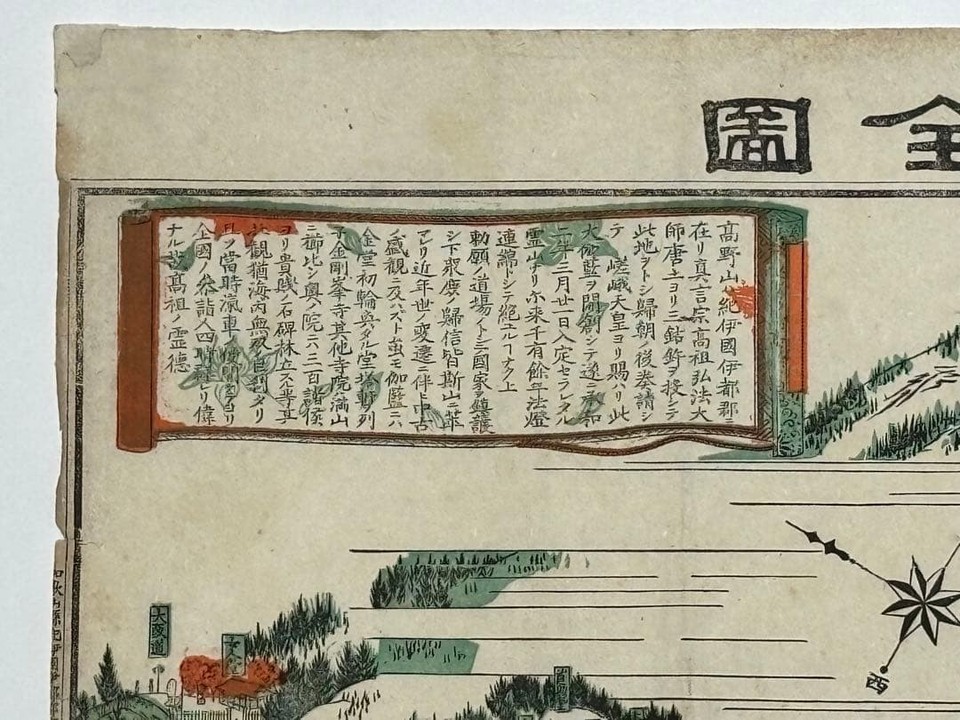 全圖
高野山ハ紀伊國伊都郡ニ
在リ真言宗高祖弘法大
師唐土ヨリ三鈷鈴ヲ投シテ
此地ヲトシ歸朝ノ後奏請シ
テ 嵯峨天皇ヨリ賜ハリ此
大伽藍ヲ開創シテ遂ニ承和
二年三月廿一日入定セラレタル
霊山ナリ尓来千有餘年法燈
連綿トシテ絶ユルヿナク上
勅願ノ道場ノト三國家ノ鎮護
シ下衆庶ノ歸信皆斯山ニ萃
マレリ近年世ノ変遷ニ伴ヒ中古
ノ盛観ニ及ハズト虽モ伽藍ニハ
金堂初輪奐タル堂塔軒ヲ列
子金剛峯寺其他寺院満山
ニ櫛比シ奥ノ院ニハ三百諸侯
ヨリ貴賤ノ石碑林立ス
観猶海内無双ノ タリ
ノ當時滊車ノ ヨリ
全國ノ参詣人四時 リ偉
ナル 高祖ノ霊徳
大阪道
女人堂
西